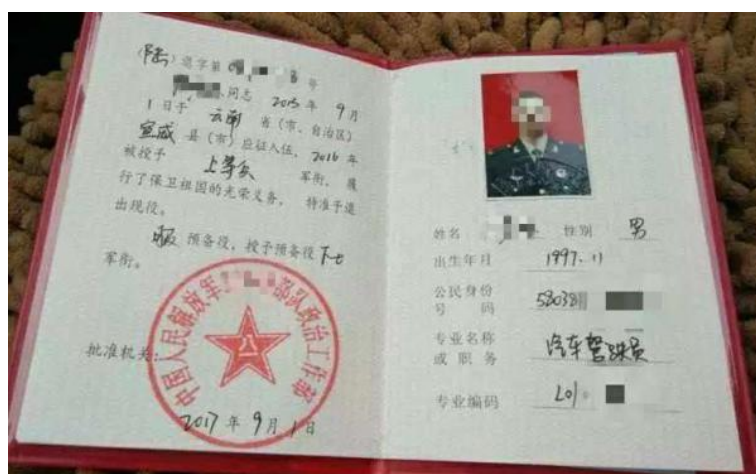 (陆)退字第0 8号
同志 2015年9月
1日于 云南 省(市、自治区)
宣威 县(市)应征入伍,2016年
被授予 上等兵 军衔,履
行了保卫祖国的光荣义务,特准予退
出现役。
服 预备役,授予预备役 下士
军衔。
批准机关:
中国人民解放军 部队政治工作部
八一
2017年9月1日
姓名 性别 男
出生年月 1997.11
公民身份
号码 530381
专业名称
或职务 汽车驾驶员
专业编码 L01